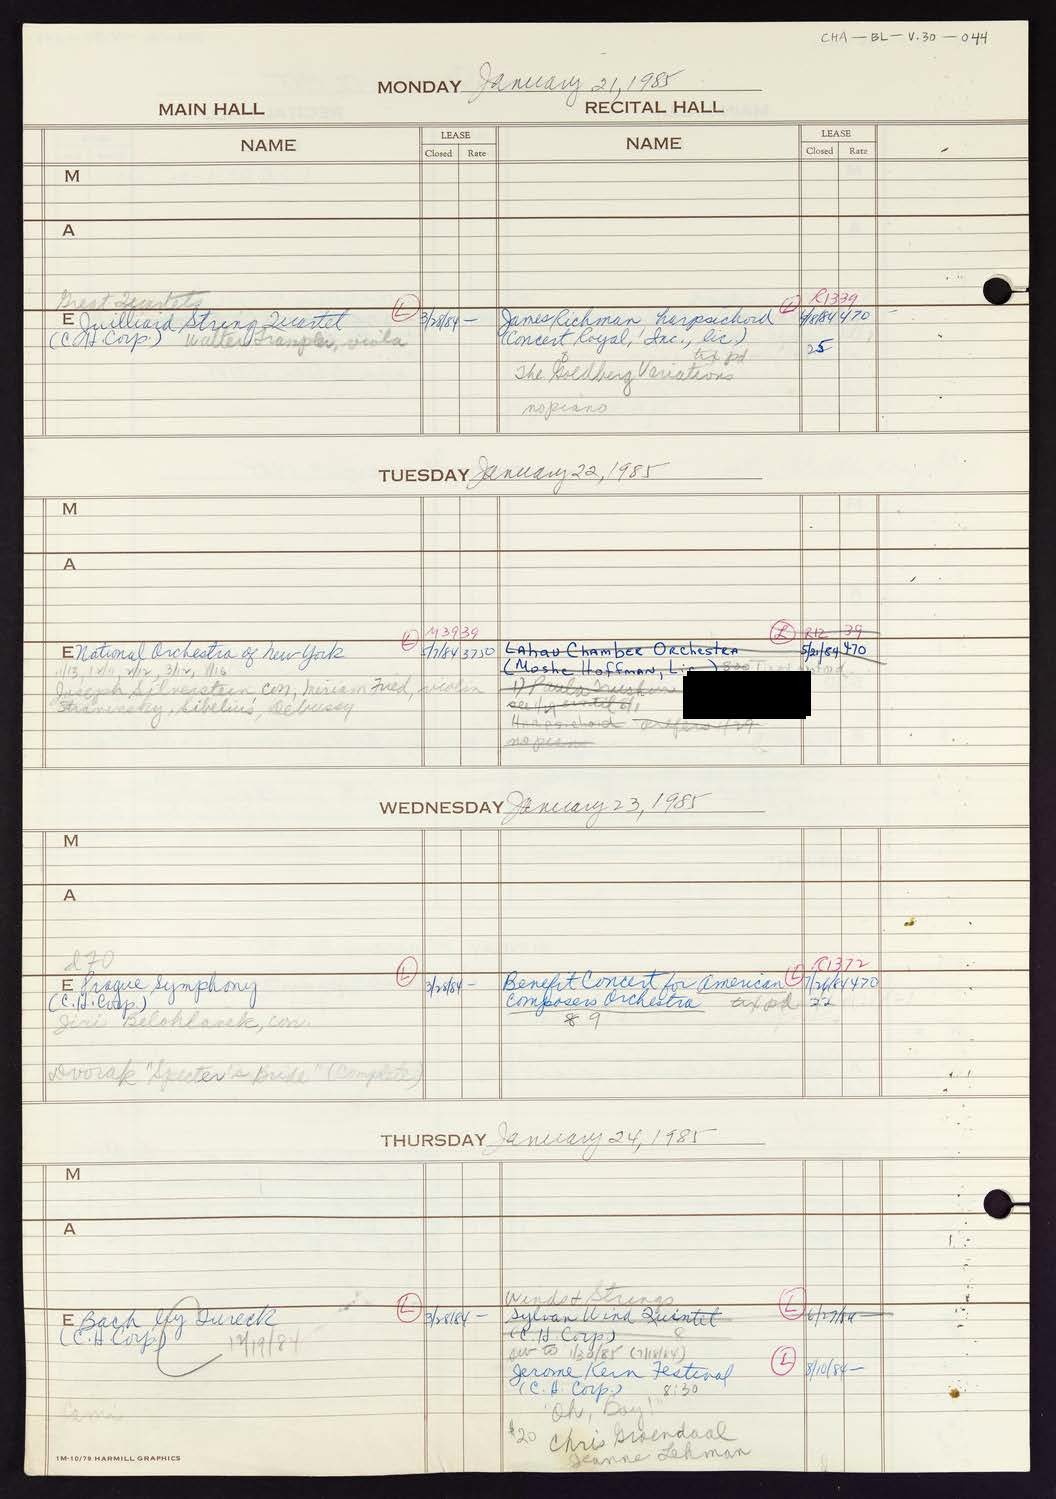 CHA-BL-V.30-044
MONDAY January 21, 1985
MAIN HALL
RECITAL HALL
NAME
LEASE
Closed Rate
NAME
LEASE
Closed Rate
M
A
Great Quartets
E Juilliard String Quartet (L) 3/28/84 -
(C.H. Corp.) Walter Trampler, viola
R1339
James Richman harpsichord (L) 470
(Concert Royal, Inc., lic.)
8 tix pd 25
The Goldberg Variations
no piano
TUESDAY January 22, 1985
M
A
M3939
E National Orchestra of New York (L) 5/7/84 3750
11/13, 12/11, 2/12, 3/12, 4/16
Joseph Silverstein con, Miriam Fried, violin
Stravinsky, Sibelius, Debussy
(L) R12 39
Lahav Chamber Orchestra 5/21/84 470
(Moshe Hoffman, Lic.)
1) Paula
until 6/1
Harpsichord prefers 1/29
no piano
WEDNESDAY January 23, 1985
M
A
d70
E Prague Symphony (L) 3/28/84 -
(C.H. Corp.)
Jiri Belohlavek, con.
Dvorak "Specter's Bride" (Complete)
R1372
Benefit Concert for American (L) 470
Composers Orchestra tix pd 22
8 9
THURSDAY January 24, 1985
M
A
E Bach by Tureck (L) 3/28/84 -
(C.H. Corp.) 12/19/84
Winds & Strings
Sylvan Wind Quintet (L) 6/27/84 -
(C.H. Corp.) 8
to 1/30/85 (7/18/84)
Jerome Kern Festival (L) 8/10/84 -
(C.H. Corp.) 8:30
"Oh, Boy!"
$20 Chris Groendaal
Jeanne Lehman
1M-10/79 HARMILL GRAPHICS